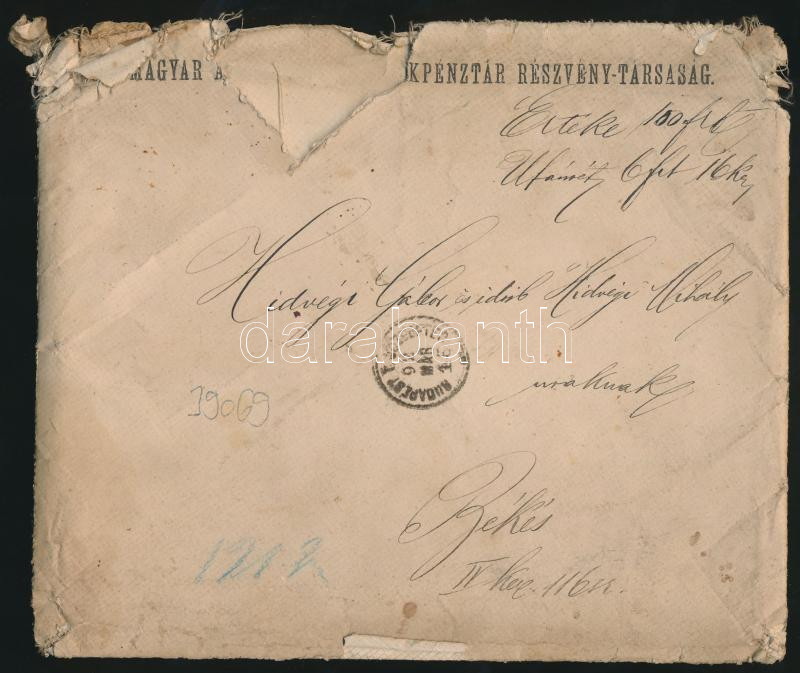 MAGYAR A KPÉNZTÁR RÉSZVÉNY-TÁRSASÁG.
Értéke 100 frt
Utánvét 6 frt 16 kr
Hidvégi Gábor és idösb Hidvégi Mihály
uraknak
darabanth
BUDAPEST
91 MÁR 15
39069
Békés
IV ker. 116 sz.